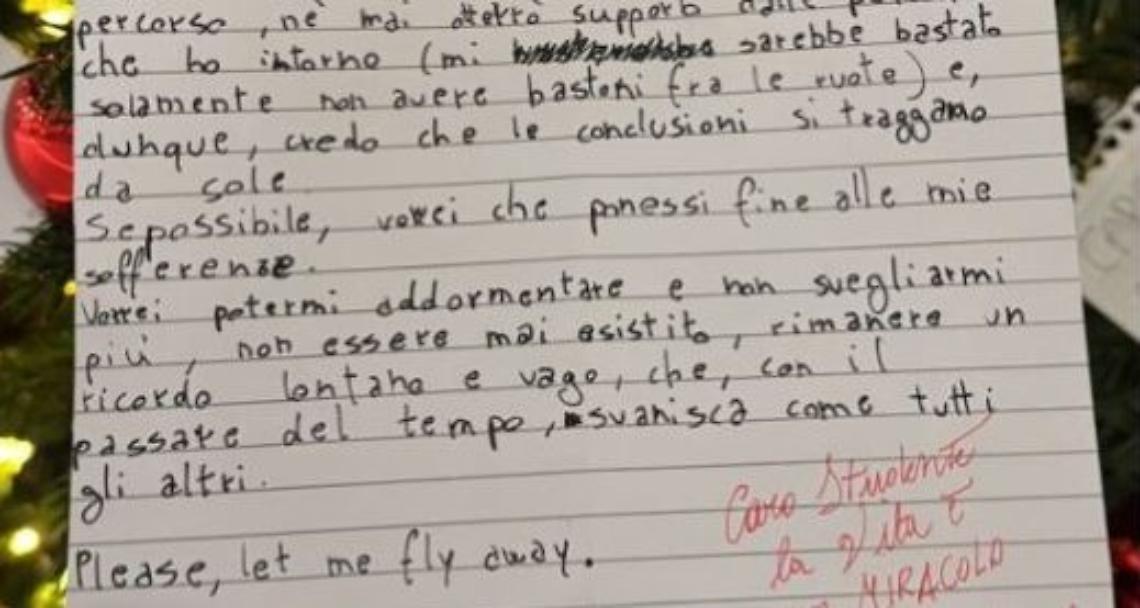 percorso, né mai otterrò supporto dalle
che ho intorno (mi sarebbe bastato
solamente non avere bastoni fra le ruote) e,
dunque, credo che le conclusioni si traggano
da sole
Se possibile, vorrei che ponessi fine alle mie
sofferenze.
Vorrei potermi addormentare e non svegliarmi
più, non essere mai esistito, rimanere un
ricordo lontano e vago, che, con il
passare del tempo, svanisca come tutti
gli altri.
Please, let me fly away.
Caro Studente
la Vita è
MIRACOLO